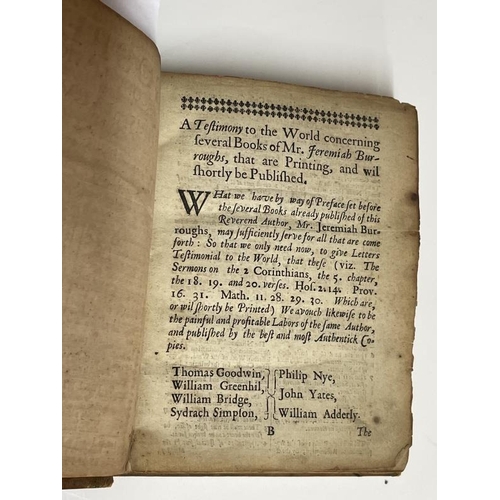 A Testimony to the World concerning
several Books of Mr. Jeremiah Bur-
roughs, that are Printing, and wil
shortly be Published.
WHat we have by way of Preface set before
the several Books already published of this
Reverend Author, Mr. Jeremiah Bur-
roughs, may sufficiently serve for all that are come
forth: So that we only need now, to give Letters
Testimonial to the World, that these (viz. The
Sermons on the 2 Corinthians, the 5. chapter,
the 18. 19. and 20. verses. Hos. 2. 14. Prov.
16. 31. Math. 11. 28. 29. 30. Which are,
or wil shortly be Printed) We avouch likewise to be
the painful and profitable Labors of the same Author,
and published by the best and most Authentick Co-
pies.
Thomas Goodwin, Philip Nye,
William Greenhil,
John Yates,
William Bridge,
Sydrach Simpson, William Adderly.
B The